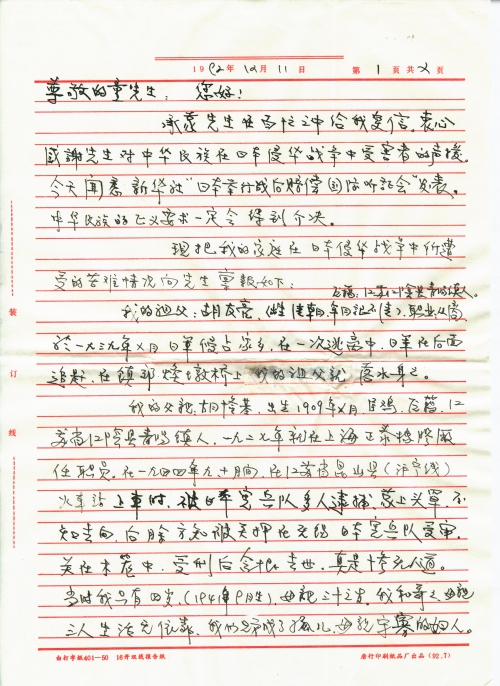 1992年12月11日 第1页共2页
尊敬的童先生： 您好！
承蒙先生在百忙之中给我复信，衷心
感謝先生对中华民族在日本侵华战争中受害者的声援。
今天闻悉新华社"日本举行战后赔偿国际听证会"发表。
中华民族的正义要求一定会得到介决。
现把我的家庭在日本侵华战争中所遭
受的苦难情况向先生稟報如下：
石籍：江苏江阴县青阳镇人。
我的祖父：胡友亮，（出生清朝年月记不清），职业从商
於一九三九年 月日軍侵占家乡，在一次逃亡中，日军在后面
追赶，在镇郊 桥上 我的祖父就 落水身亡。
我的父親：胡 基，出生1909年 月 ，石籍，江
苏省江阴县青阳镇人，一九二七年就在上海正泰橡膠廠
任职员，在一九四四年九、十月间，在江苏省昆山县（沪宁线）
火车站上車时，被日本宪兵队多人逮捕，蒙上头罩，不
知去向，向后方知被关押在无锡日本宪兵队受审，
关在木笼中，受刑后含恨去世，真是惨无人道。
当时我只有四岁，（1941年8月生），母親三十三岁，我和哥哥、母親
三人生活无依靠，我们兄弟成了孤儿，母親守寡的妇人。
装
订
线
由打字紙401—50 16开双线报告紙
唐行印刷紙品厂出品（92.7）